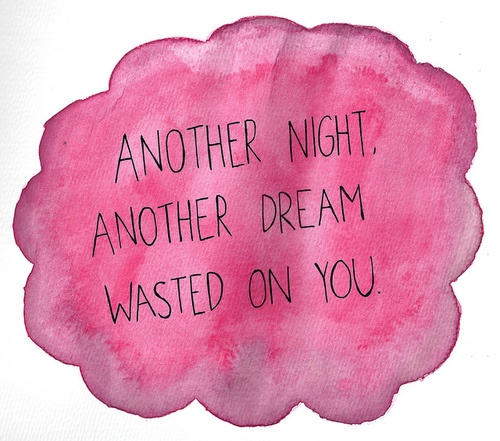 ANOTHER NIGHT,
ANOTHER DREAM
WASTED ON YOU.